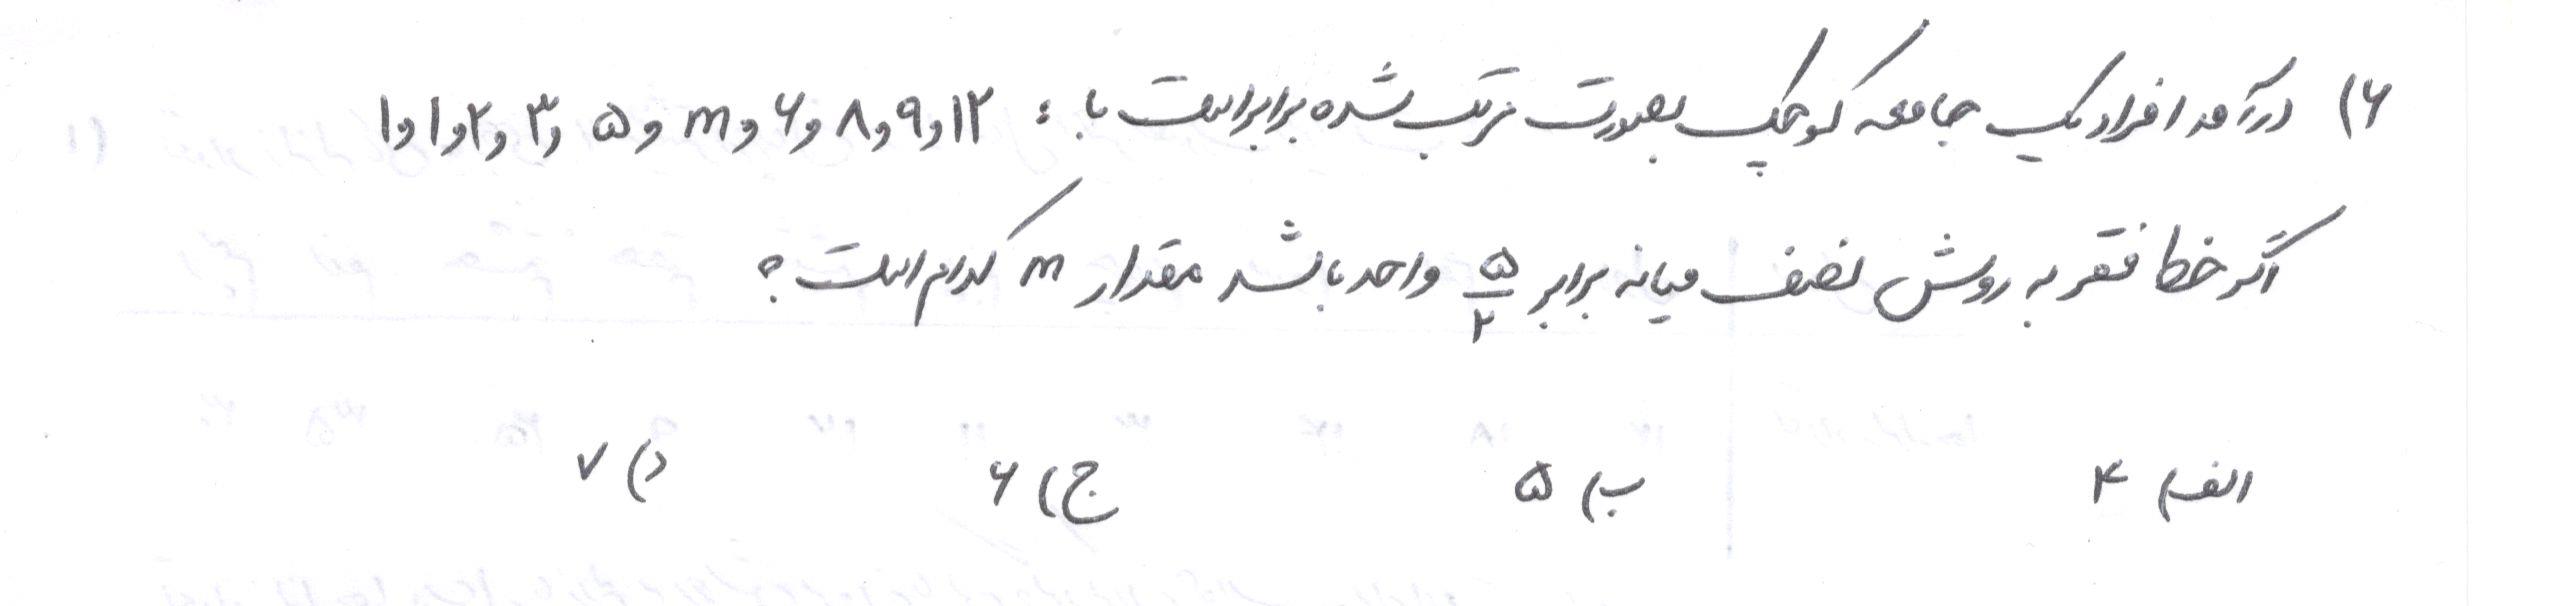 ۶) درآمد افراد یک جامعه کوچک بصورت مرتب شده برابر است با : ۱و۱و۲و۳و۵وmو۶و۸و۹و۱۲
اگر خط فقر به روش نصف میانه برابر ۵/۲ واحد باشد مقدار m کدام است ؟
الف) ۴ ب) ۵ ج) ۶ د) ۷